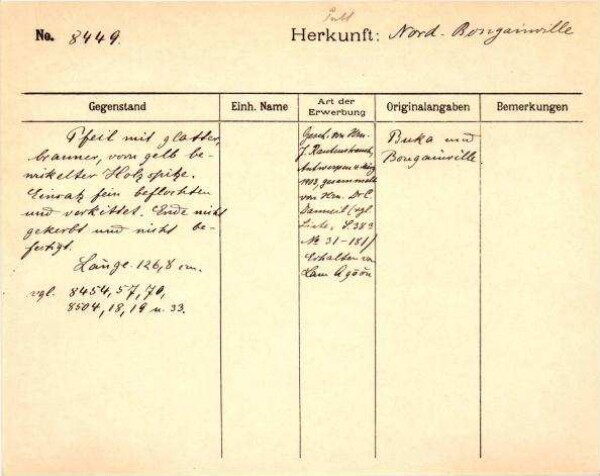 No. 8449.
Herkunft: Nord-Bougainville
Gegenstand
Einh. Name
Art der Erwerbung
Originalangaben
Bemerkungen
Pfeil mit glatter,
brauner, vorn gelb be-
wickelter Holzspitze.
Einsatz fein beflochten
und verkittet. Ende nicht
gekerbt und nicht be-
festigt.
Länge 126,8 cm.
vgl. 8454, 57, 70,
8504, 18, 19 u. 33.
Gesch. von Hrn.
J. Rautenstrauch,
Antwerpen
1903, gesammelt
von Hrn. Dr. C.
Danneil (vgl.
Liste, S. 383
No 31-181)
Erhalten
Buka und
Bougainville.